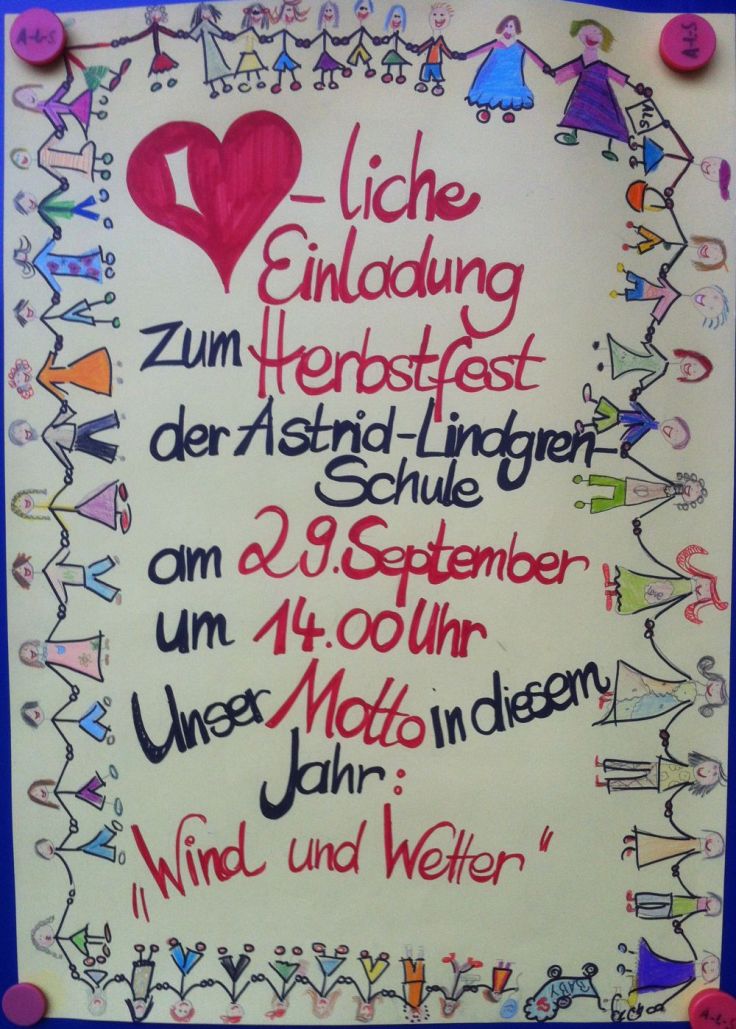 A-L-S
A-L-S
ALS
-liche
Einladung
zum Herbstfest
der Astrid-Lindgren-
Schule
am 29. September
um 14.00 Uhr
Unser Motto in diesem
Jahr:
„Wind und Wetter“
love
BABY
A-L-S